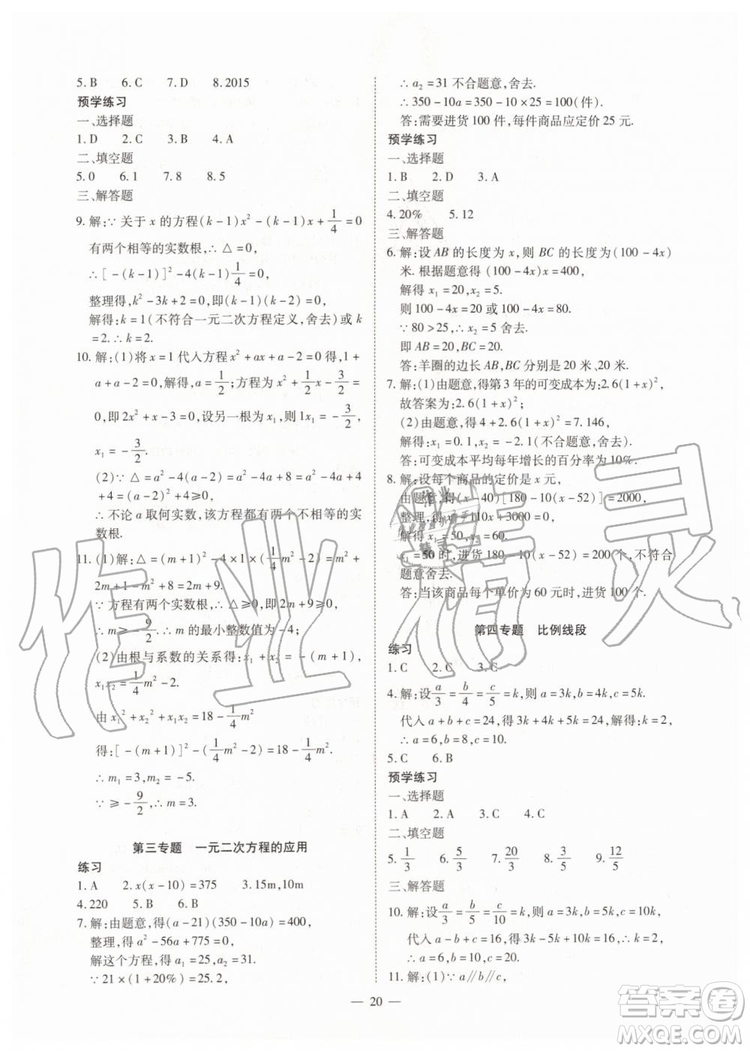 5. B  6. C  7. D  8. 2015
预学练习
一、选择题
1. D  2. C  3. C  4. A
二、填空题
5. 0  6. 1  7. 8  8. 8
三、解答题
9. 解:∵ 关于 x 的方程(k-1)x²-(k-1)x+1/4=0
有两个相等的实数根,∴ △=0,
∴ [-(k-1)]²-4(k-1)1/4=0,
整理得,k²-3k+2=0,即(k-1)(k-2)=0,
解得:k=1(不符合一元二次方程定义,舍去)或 k
=2. ∴ k=2.
10. 解:(1)将 x=1 代入方程 x²+ax+a-2=0 得,1+
a+a-2=0,解得,a=1/2;方程为 x²+1/2x-3/2=
0,即 2x²+x-3=0,设另一根为 x₁,则 1x₁=-3/2,
x₁=-3/2.
(2)∵△=a²-4(a-2)=a²-4a+8=a²-4a+
4+4=(a-2)²+4>0,
∴ 不论 a 取何实数,该方程都有两个不相等的实
数根.
11. (1)解:△=(m+1)²-4×1×(1/4m²+1)=
2m+1-4=2m-3,
∵ 方程有两个实数根,∴△≥0,即 2m-3≥0,
∴ m≥3/2,∴ m 的最小整数值为=2.
(2)由根与系数的关系得:x₁+x₂=-(m+1),
x₁x₂=1/4m².
由 x₁²+x₂²+x₁x₂=18-1/4m²
得:[-(m+1)]²-1/4m²=18-1/4m²,
∴ m₁=3,m₂=-5.
∵ ≥-9/2,∴ m=3.
第三专题 一元二次方程的应用
练习
1. A  2. x(x-10)=375  3. 15m,10m
4. 220  5. B  6. B
7. 解:由题意,得(a-21)(350-10a)=400,
整理,得 a²-56a+775=0,
解这个方程,得 a₁=25,a₂=31.
∵21×(1+20%)=25.2,
∴ a₂=31 不合题意,舍去.
∴ 350-10a=350-10×25=100(件).
答:需要进货 100 件,每件商品应定价 25 元.
预学练习
一、选择题
1. B  2. D  3. A
二、填空题
4. 20%  5. 12
三、解答题
6. 解:设 AB 的长度为 x,则 BC 的长度为(100-4x)
米. 根据题意得(100-4x)x=400,
解得 x₁=20,x₂=5.
则 100-4x=20 或 100-4x=80.
∵ 80>25,∴ x₂=5 舍去.
即 AB=20,BC=20.
答:羊圈的边长 AB,BC 分别是 20 米、20 米.
7. 解:(1)由题意,得第 3 年的可变成本为:2.6(1+x)²,
故答案为:2.6(1+x)²;
(2)由题意,得 4+2.6(1+x)²=7.146,
解得:x₁=0.1,x₂=-2.1(不合题意,舍去).
答:可变成本平均每年增长的百分率为 10%.
8. 解:设每个商品的定价是 x 元,
由题意,得(x-40)[180-10(x-52)]=2000,
整理,得 x²-110x+3000=0,
解得 x₁=50,x₂=60.
x₁=50 时,进货 180-10(x-52)=200,不符合
题意舍去.
答:当该商品每个单价为 60 元时,进货 100 个.
第四专题 比例线段
练习
1. C  2. C  3. C
4. 解:设a/3=b/4=c/5=k,则 a=3k,b=4k,c=5k,
代入 a+b+c=24,得 3k+4k+5k=24,解得 k=2,
∴ a=6,b=8,c=10.
5. C  6. B
预学练习
一、选择题
1. A  2. A  3. C  4. C
二、填空题
5. 1/3  6. 5/3  7. 20/3  8. 3/5  9. 3/5
三、解答题
10. 解:设a/3=b/4=c/5=k,则 a=3k,b=4k,c=5k,
代入 a-b+c=8,得 3k-4k+5k=8,解得 k=2,
∴ a=6,b=8,c=10.
11. 解:(1)∵ a∥b∥c,
— 20 —
作业精灵
答案圈
MXQE.COM